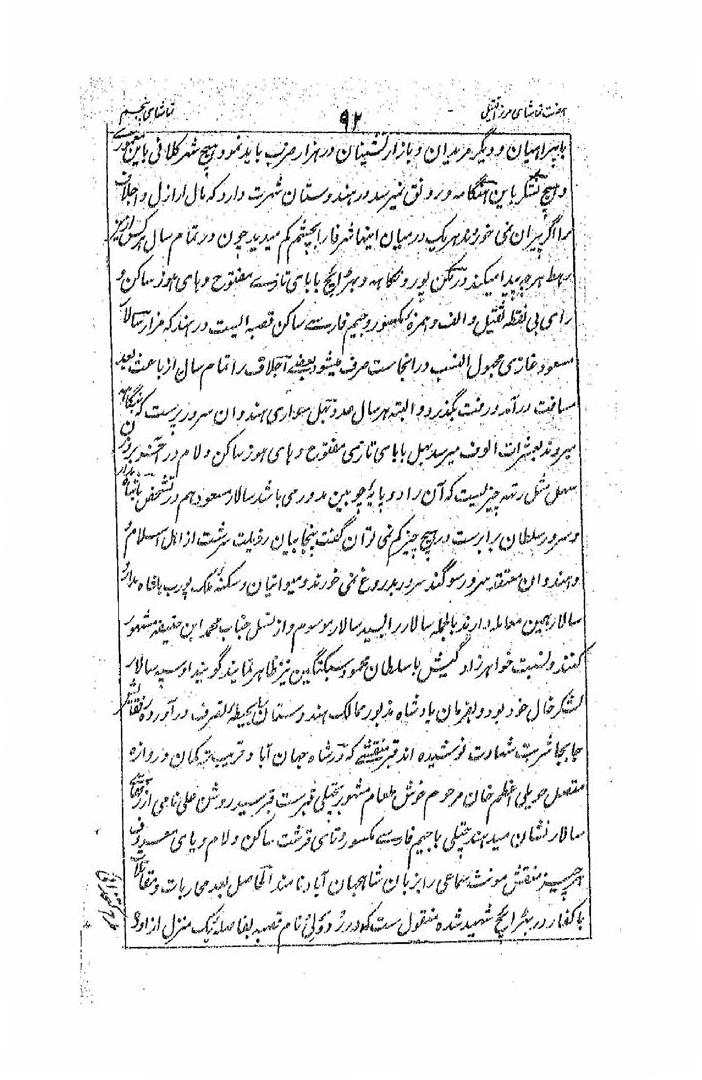 هفت تماشای مرزا قتیل
۹۲
تماشای پنجم
با پیراهیان و دیگر مریدان و بازار نشینان در هزار ضرب باید نمود و هیچ شهر کلانی باین معموری
و هیچ لشکر باین هنگامه و رونق نمیرسد در هندوستان شهرت دارد که مال ارازل و اجلاف
را اگر پیران نمی خوردند هریک در میان اینها شرفا را بچشم کم میدید چون در تمام سال هرکس ازین
رهط هرچه پیدا میکند در مکن پور و نگاهه و بهرائچ با بای تازی مفتوح و های هوز ساکن و
رای بی نقطه ثقیل و الف و همزه مکسور و جیم فارسی ساکن قصبه ایست در هند که مزار سالار
مسعود غازی مجهول النسب در انجاست صرف میشود بعضی اجلاف را تمام سال از باعث بعد
مسافت در آمد و رفت بگذرد و البته هر سال صد و چهل سواری هندوان سرور پرست که بنگاهه
میروند بعشرات الوف میرسد بهل بابای تازی مفتوح و های هوز ساکن و لام در آخر
بهل مثل رته چیزیست که آن را دو پایه چوبین مدور می باشد سالار مسعود هم در تشخص با شاه مدار
و سرور سلطان برابرست در هیچ چیز کم نمی توان گفت پنجابیان رذیلت سرشت از اهل اسلام و
و هندوان معتقد سرور سوگند سرور بدروغ نمی خورند و میواتیان و سکنه ملک پورب با شاه مدار و
سالار همین معامله دارند بالجمله سالار را السید سالار موسوم و از نسل جناب محمد ابن حنیفه مشهور
کنند و نسبت خواهرزادگیش با سلطان محمود سبکتگین نیز ظاهر نمایند گویند او سپه سالار
لشکر خال خود بود و بفرمان بادشاه مذبور ممالک هندوستان بحیطه تصرف در آورده رفقاش
جابجا شربت شهادت نوشیده اند قبر منقشی که در شاه جهان آباد قریب ترکمان دروازه
متصل حویلی اعظم خان مرحوم خوش طعام مشهور بچتلی قبرست قبر سید روشن علی نامی از رفقای
سالار نشان میدهند چتلی با جیم فارسی مکسور و تای قرشت ساکن و لام و یای معروف
هر چیز منقش مونث سماعی را بزبان شاهجهان آباد نامند الحاصل بعد محاربات و مقاتلات
با کفار در بهرائچ شهید شده منقول ست که در ردولی نام قصبه بفاصله یک منزل از اوده